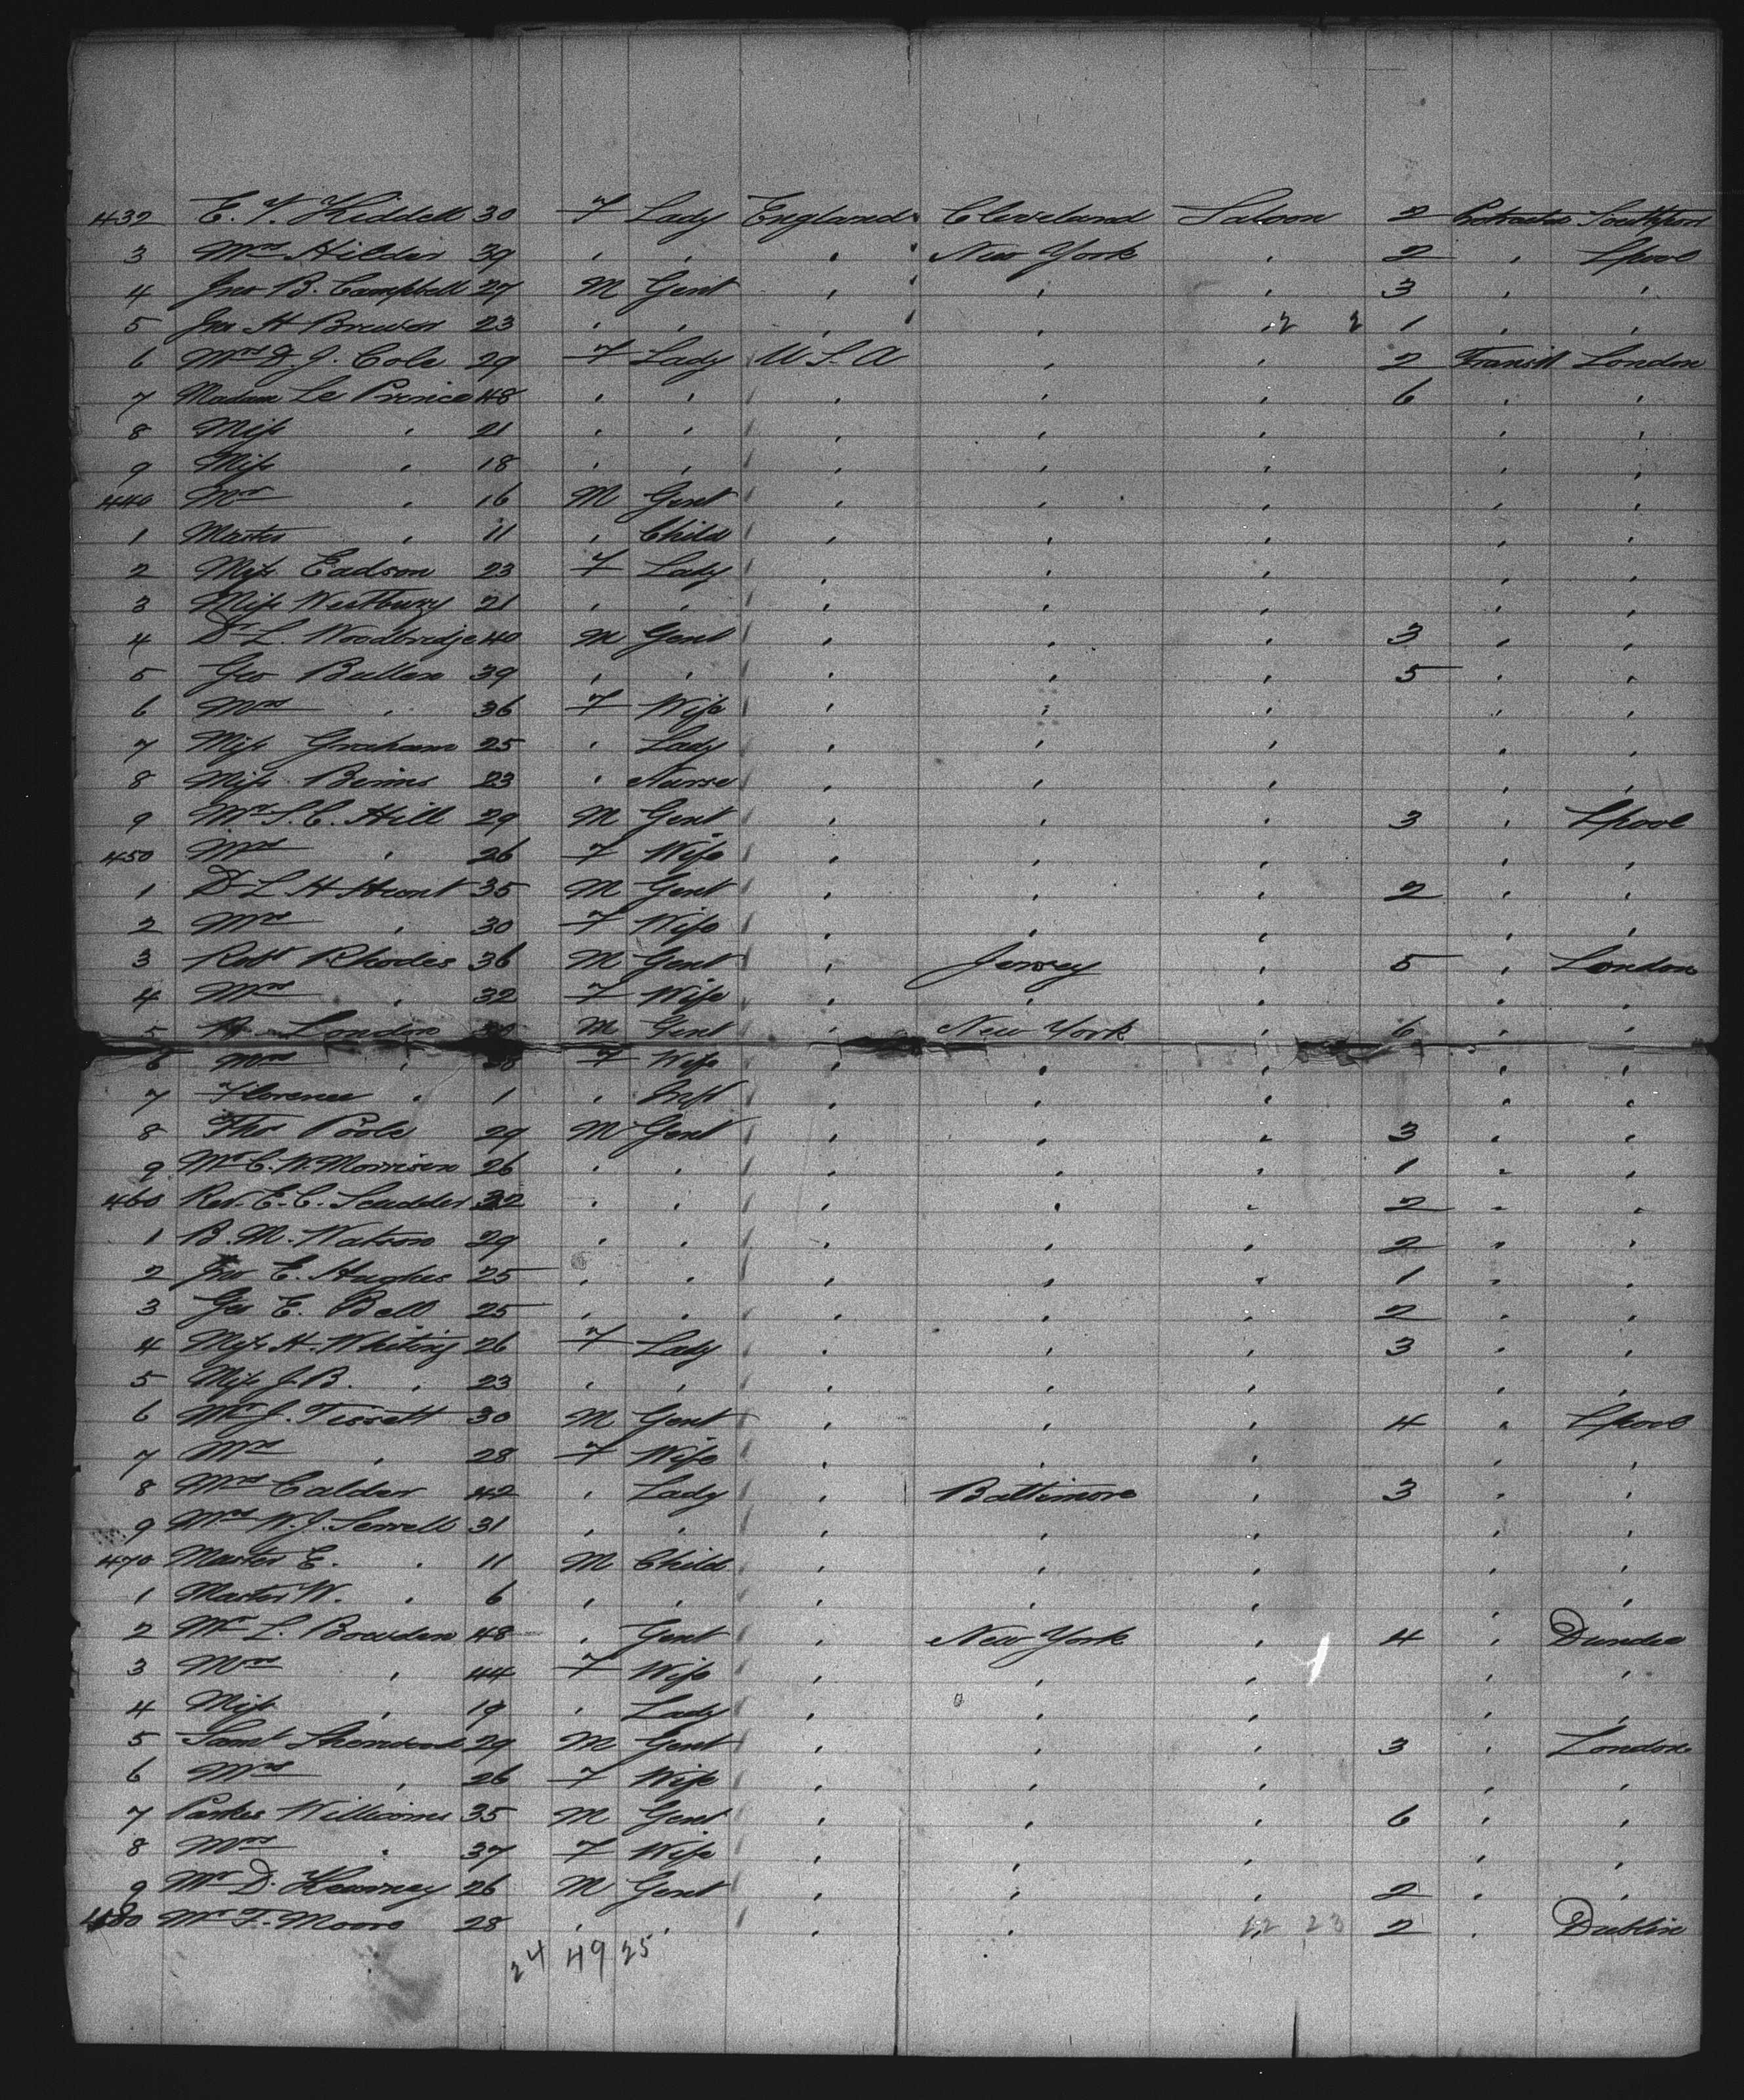 432 E. V. Kiddell 30 F Lady England Cleveland Saloon 2 Protracted Southport
3 Mrs Hilder 39 " " " New York " 2 " Lpool
4 Jno B. Campbell 27 M Gent " " " 3 " "
5 Jno H Brewer 23 " " " " " 2 2 1 " "
6 Mrs D J. Cole 29 F Lady U S. A " " 2 Transit London
7 Madam Le Prince 48 " " " " " 6 " "
8 Miss " 21 " " " " " " "
9 Miss " 18 " " " " " " "
440 Mr " 16 M Gent " " " " "
1 Master " 11 " Child " " " " "
2 Miss Eadson 23 F Lady " " " " "
3 Miss Westbury 21 " " " " " " "
4 Dr L. Woodbridge 40 M Gent " " " 3 " "
5 Geo Bullen 39 " " " " " 5 " "
6 Mrs " 36 F Wife " " " " "
7 Miss Graham 25 " Lady " " " " "
8 Miss Binns 23 " Nurse " " " " "
9 Mr S. C. Hill 29 M Gent " " " 3 " Lpool
450 Mrs " 26 F Wife " " " " "
1 Dr L. H Hunt 35 M Gent " " " 2 " "
2 Mrs " 30 F Wife " " " " "
3 Robt Rhodes 36 M Gent " Jersey " 5 " London
4 Mrs " 32 F Wife " " " " "
5 London M Gent " New York " 6 " "
6 Mrs " F Wife " " " " "
7 Florence " 1 " Inft " " " " "
8 Thos Poole 29 M Gent " " " 3 " "
9 Mr C. W. Morrison 26 " " " " " 1 " "
460 Rev. E. C. Scudder 32 " " " " " 2 " "
1 B. M. Watson 29 " " " " " 2 " "
2 Jno E. Hughes 25 " " " " " 1 " "
3 Geo E. Bell 25 " " " " " 2 " "
4 Miss H. Whiting 26 F Lady " " " 3 " "
5 Miss J. B. " 23 " " " " " " "
6 Mr J. Tissett 30 M Gent " " " 4 " Lpool
7 Mrs " 28 F Wife " " " " "
8 Mrs Calder 42 " Lady " Baltimore " 3 " "
9 Mrs W. J. Serrell 31 " " " " " " "
470 Master E. " 11 M Child " " " " "
1 Master W. " 6 " " " " " " "
2 Mr L. Bowden 48 " Gent " New York " 4 " Dundee
3 Mrs " 44 F Wife " " " " "
4 Miss " 19 " Lady " " " " "
5 Saml Sherwood 29 M Gent " " " 3 " London
6 Mrs " 26 F Wife " " " " "
7 Parker Williams 35 M Gent " " " 6 " "
8 Mrs " 37 F Wife " " " " "
9 Mr D. Kearney 26 M Gent " " " 2 " "
480 Mr F. Moore 28 " " " " 22 23 2 " Dublin
24 49 25